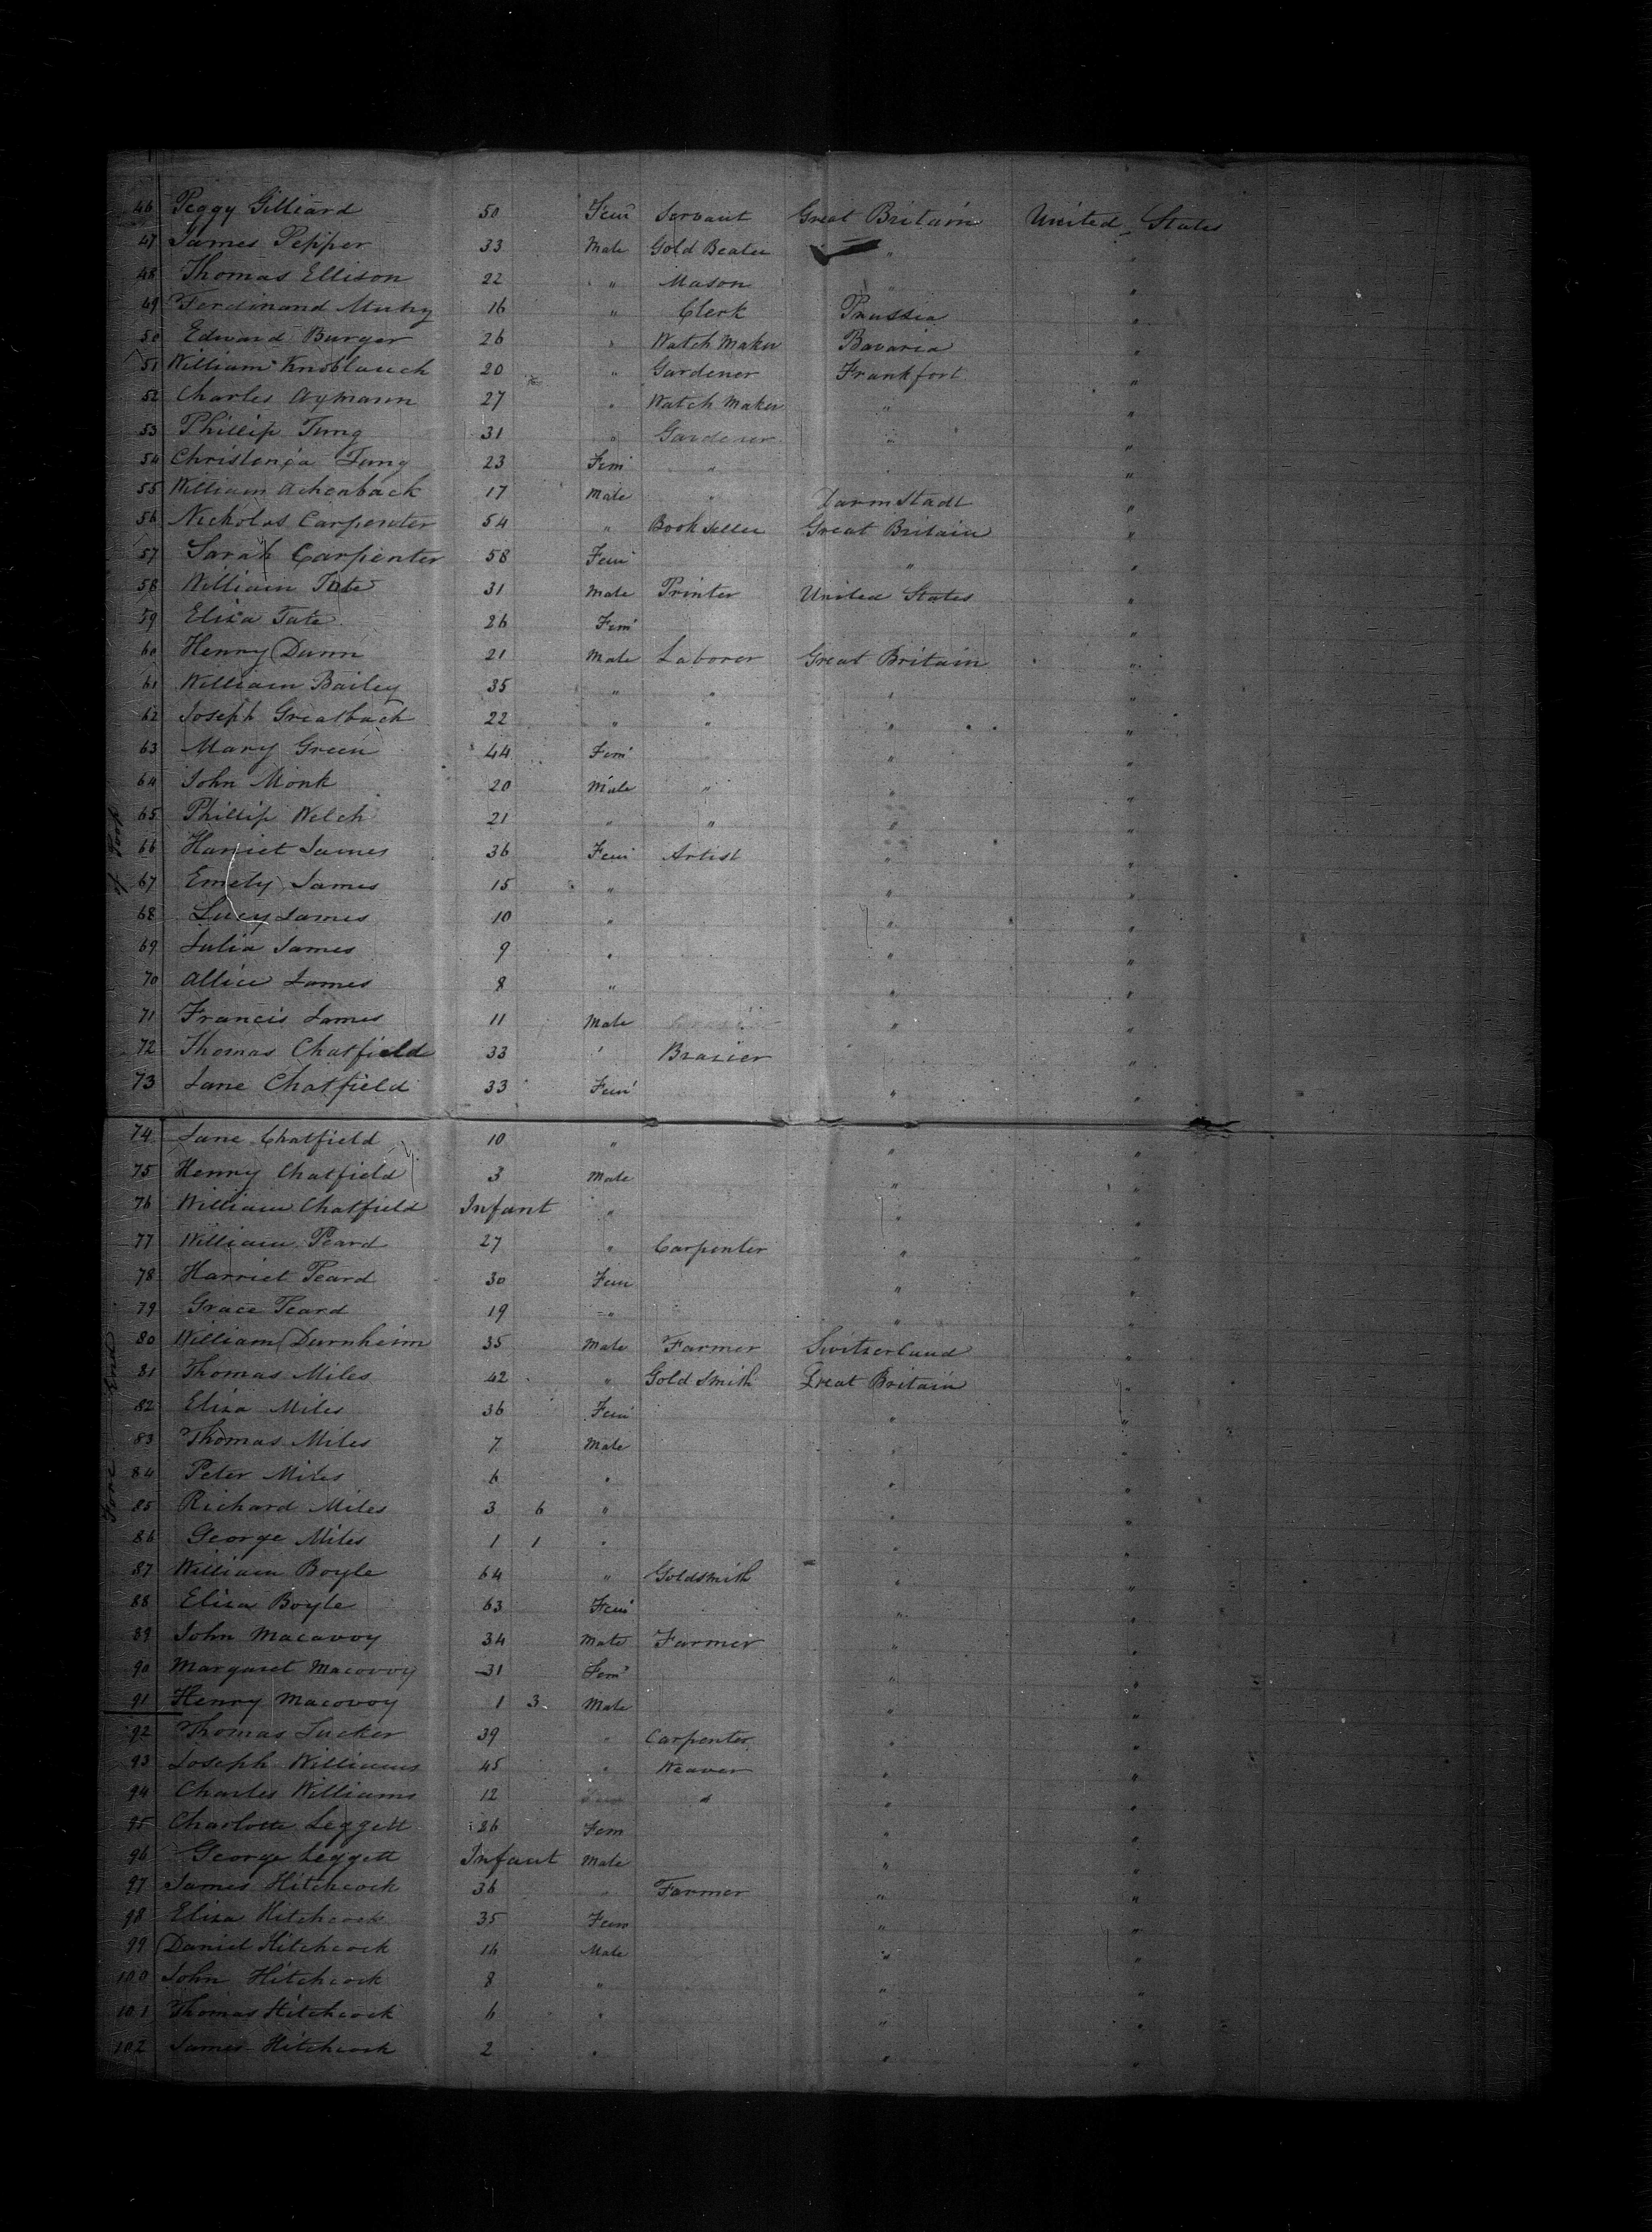 46 Peggy Gilliard 50 Fem Servant Great Britain United States
47 James Pepper 33 Male Gold Beater " "
48 Thomas Ellison 22 " Mason " "
49 Ferdinand 16 " Clerk Prussia "
50 Edward Burger 26 " Watch Maker Bavaria "
51 William Knoblauch 20 " Gardener Frankfort "
52 Charles Aymann 27 " Watch Maker " "
53 Phillip Jung 31 " Gardener " "
54 Jung 23 Fem " " "
55 William Achenback 17 Male " Darmstadt "
56 Nicholas Carpenter 54 " Book Seller Great Britain "
57 Sarah Carpenter 58 Fem " "
58 William Tate 31 Male Printer United States "
59 Eliza Tate 26 Fem "
60 Henry Dunn 21 Male Laborer Great Britain "
61 William Bailey 35 " " " "
62 Joseph Greatbach 22 " " " "
63 Mary Green 44 Fem " "
64 John Monk 20 Male " " "
65 Phillip Welch 21 " " " "
66 Harriet James 36 Fem Artist " "
67 Emely James 15 " " "
68 Lucy James 10 " " "
69 Julia James 9 " " "
70 Allice James 8 " " "
71 Francis James 11 Male " "
72 Thomas Chatfield 33 " Brazier " "
73 Jane Chatfield 33 Fem " "
74 Jane Chatfield 10 " " "
75 Henry Chatfield 3 Male " "
76 William Chatfield Infant " " "
77 William Peard 27 " Carpenter " "
78 Harriet Peard 30 Fem " "
79 Grace Peard 19 " " "
80 William Durnheim 35 Male Farmer Switzerland "
81 Thomas Miles 42 " Gold Smith Great Britain "
82 Eliza Miles 36 Fem " "
83 Thomas Miles 7 Male " "
84 Peter Miles 6 " " "
85 Richard Miles 3 6 " " "
86 George Miles 1 1 " " "
87 William Boyle 64 " Goldsmith " "
88 Eliza Boyle 63 Fem " "
89 John Macavoy 34 Male Farmer " "
90 Margaret Macovoy 31 Fem " "
91 Henry Macovoy 1 3 Male " "
92 Thomas Tucker 39 " Carpenter " "
93 Joseph Williams 45 " Weaver " "
94 Charles Williams 12 " " "
95 Charlotte Leggett 26 Fem " "
96 George Leggett Infant Male " "
97 James Hitchcock 36 " Farmer " "
98 Eliza Hitchcock 35 Fem " "
99 Daniel Hitchcock 16 Male " "
100 John Hitchcock 8 " " "
101 Thomas Hitchcock 6 " " "
102 James Hitchcock 2 " " "